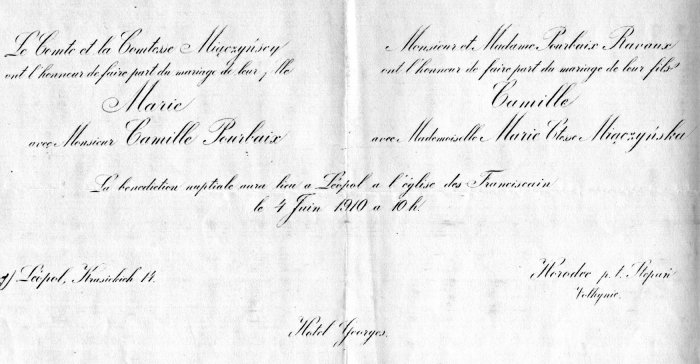 Le Comte et la Comtesse Miączyńscy
ont l'honneur de faire part du mariage de leur fille
Marie
avec Monsieur Camille Pourbaix
Monsieur et Madame Pourbaix Ravaux
ont l'honneur de faire part du mariage de leur fils
Camille
avec Mademoiselle Marie Ctesse Miączyńska
La benediction nuptiale aura lieu a Léopol a l'église des Franciscain
le 4 Juin 1910 a 10 h.
Léopol, Krasickich 14.
Horodec p. t. Stepań
Volhynie.
Hotel Georges.